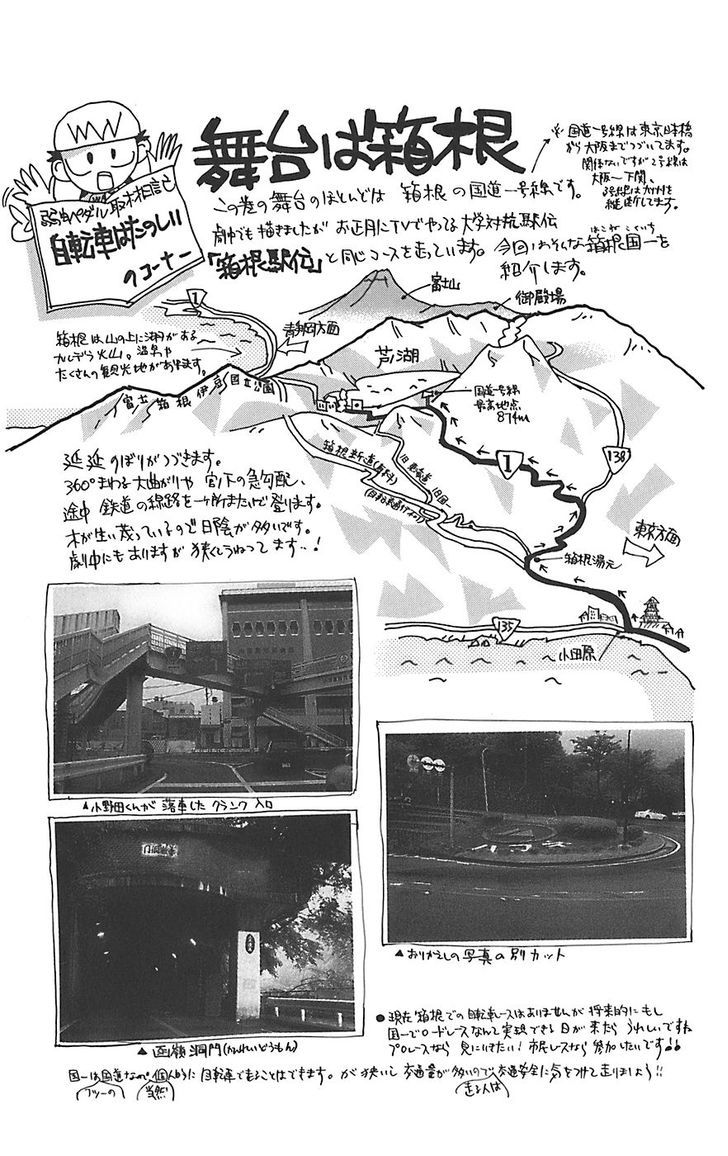 弱虫ペダル取材日記
自転車はたのしい
のコーナー
舞台は箱根
※国道一号線は東京日本橋
から大阪までつづいてます。
関係ないですが2号線は
大阪〜下関、
3号線は九州を
縦断してます。
この巻の舞台のほとんどは 箱根の国道一号線です。
劇中でも描きましたが お正月にTVでやってる大学対抗駅伝
「箱根駅伝」と同じコースを走っています。今回はそんな箱根国一を
はこね こくいち
紹介します。
箱根は山の上に湖がある
カルデラ火山。温泉や
たくさんの観光地があります。
1
静岡方面
富士山
御殿場
芦ノ湖
富士箱根伊豆国立公園
国道一号線
最高地点
874m
箱根新道(有料)
旧東海道
旧国一
1
138
東京方面
箱根湯元
135
小田原
延延のぼりがつづきます。
360°まわる大曲がりや 宮ノ下の急勾配、
途中 鉄道の線路を一ヶ所またいで登ります。
木が生い茂っているので日陰が多いです。
劇中にもありますが 狭くてうねってます…!
▲小野田くんが落車したクランク入口
▲函嶺洞門(かんれいどうもん)
▲おりかえしの写真の別カット
●現在 箱根での自転車レースはありませんが 将来的にもし
国一でロードレースなんて実現できる日が来たら うれしいですね
プロレースなら 見にいきたい! 市民レースなら 参加したいです!!
国一は国道なので、個人的に自転車で走ることはできます。が狭いし 交通量が多いので、交通安全に気をつけて走りましょう!!
フツーの
当然
走る人は